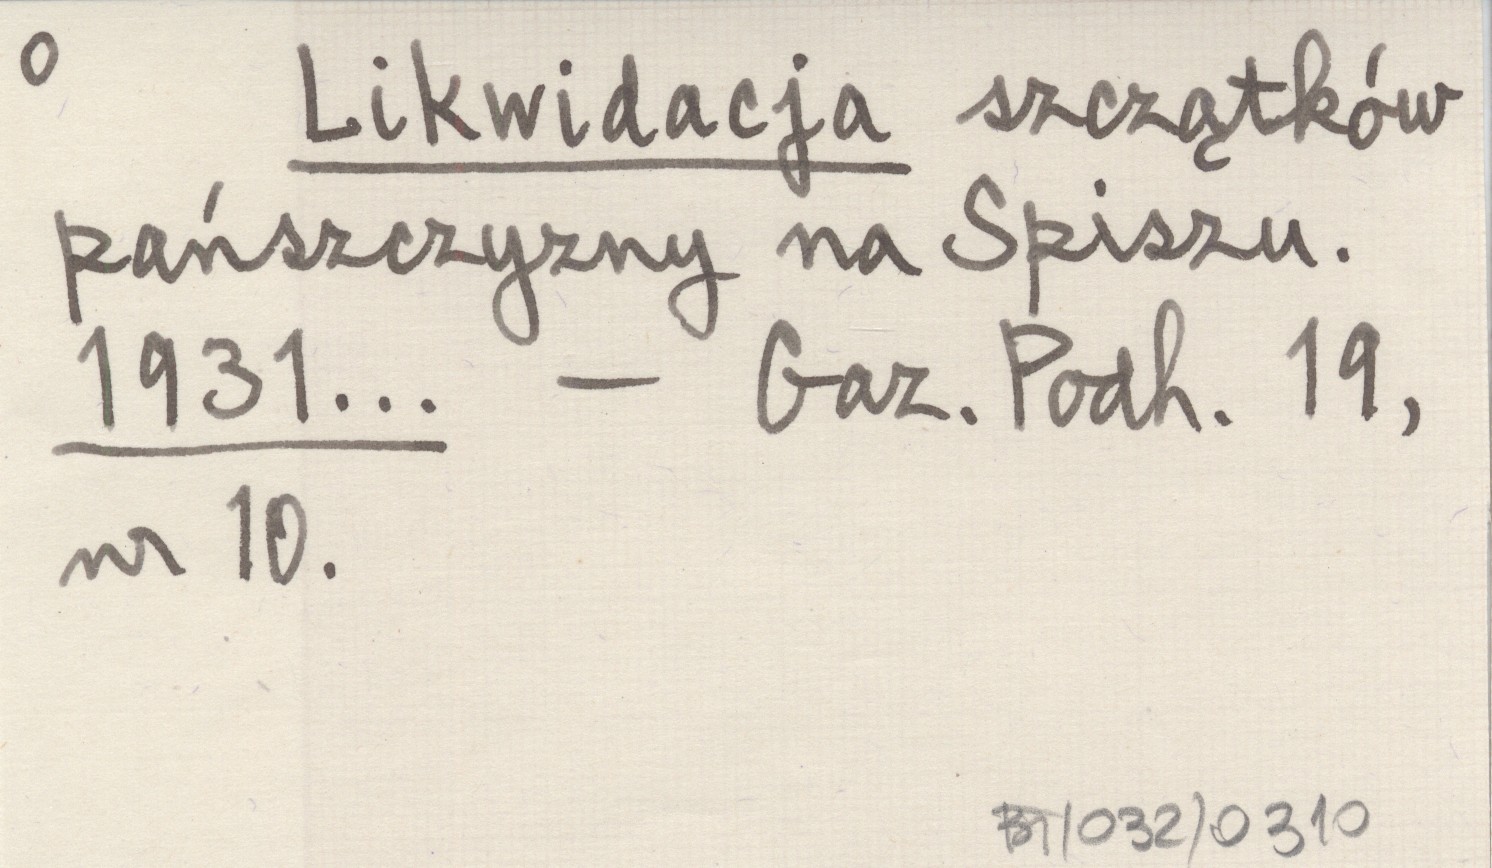 o Likwidacja szczątków
pańszczyzny na Spiszu.
1931... — Gaz. Podh. 19,
nr 10.
BT/032/0310